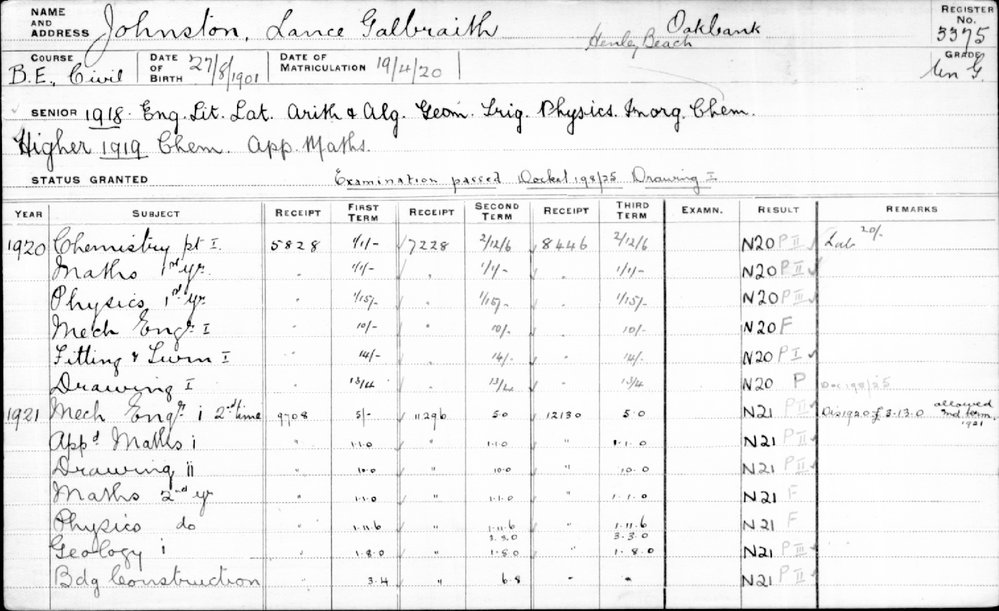 NAME AND ADDRESS Johnston, Lance Galbraith Henley Beach Oakbank REGISTER No. 3375
COURSE B.E., Civil DATE OF BIRTH 27/8/1901 DATE OF MATRICULATION 19/4/20 GRADE Un G.
SENIOR 1918. Eng. Lit. Lat. Arith & Alg. Geom. Trig. Physics. Inorg. Chem.
Higher 1919 Chem. App. Maths.
STATUS GRANTED Examination passed Docket 198/25 Drawing I
YEAR SUBJECT RECEIPT FIRST TERM RECEIPT SECOND TERM RECEIPT THIRD TERM EXAMN. RESULT REMARKS
1920 Chemistry pt I. 5828 1/1/- 7228 2/12/6 8446 2/12/6 N20 P II Lab 20/-
Maths 1st yr. " 1/1/- " 1/1/- " 1/1/- N20 P II
Physics 1st yr " 1/15/- " 1/15/- " 1/15/- N20 P III
Mech Engr I " 10/- " 10/- " 10/- N20 F
Fitting & Turn I " 14/- 14/- " 14/- N20 P I
Drawing I " 13/4 13/4 " 13/4 N20 P Doc 198/25
1921 Mech Engr. i 2nd time 9708 5/- 11296 5.0 12130 5.0 N21 P II Dis 1920 £3.13.0 allowed 2nd term. 1921
Appd Maths i " 1.1.0 " 1.1.0 " 1.1.0 N21 P II
Drawing ii " 10.0 " 10.0 " 10.0 N21 P II
Maths 2nd yr " 1.1.0 " 1.1.0 " 1.1.0 N21 F
Physics do " 1.11.6 " 1.11.6 " 1.11.6 N21 F
3.3.0 3.3.0
Geology i " 1.8.0 " 1.8.0 " 1.8.0 N21 P III
Bdg Construction 3.4 " 6.8 " " N21 P II